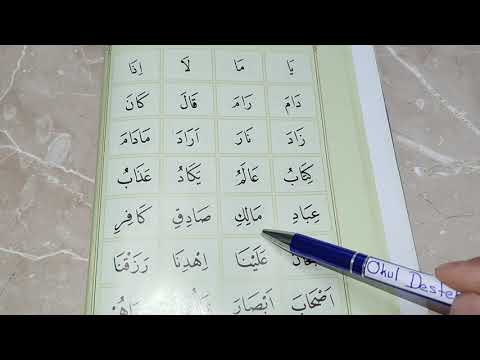 يَا مَا لَا اِذَا
دَامَ رَامَ قَالَ كَانَ
زَادَ نَارَ اَرَادَ مَادَامَ
كِتَابُ عَالَمُ يَكَادُ عَذَابُ
عِبَادِ مَالِكِ صَادِقِ كَافِرِ
عَلَيْنَا اِهْدِنَا رَزَقْنَا
اَصْحَابَ اَبْصَارَ
Okul Deste